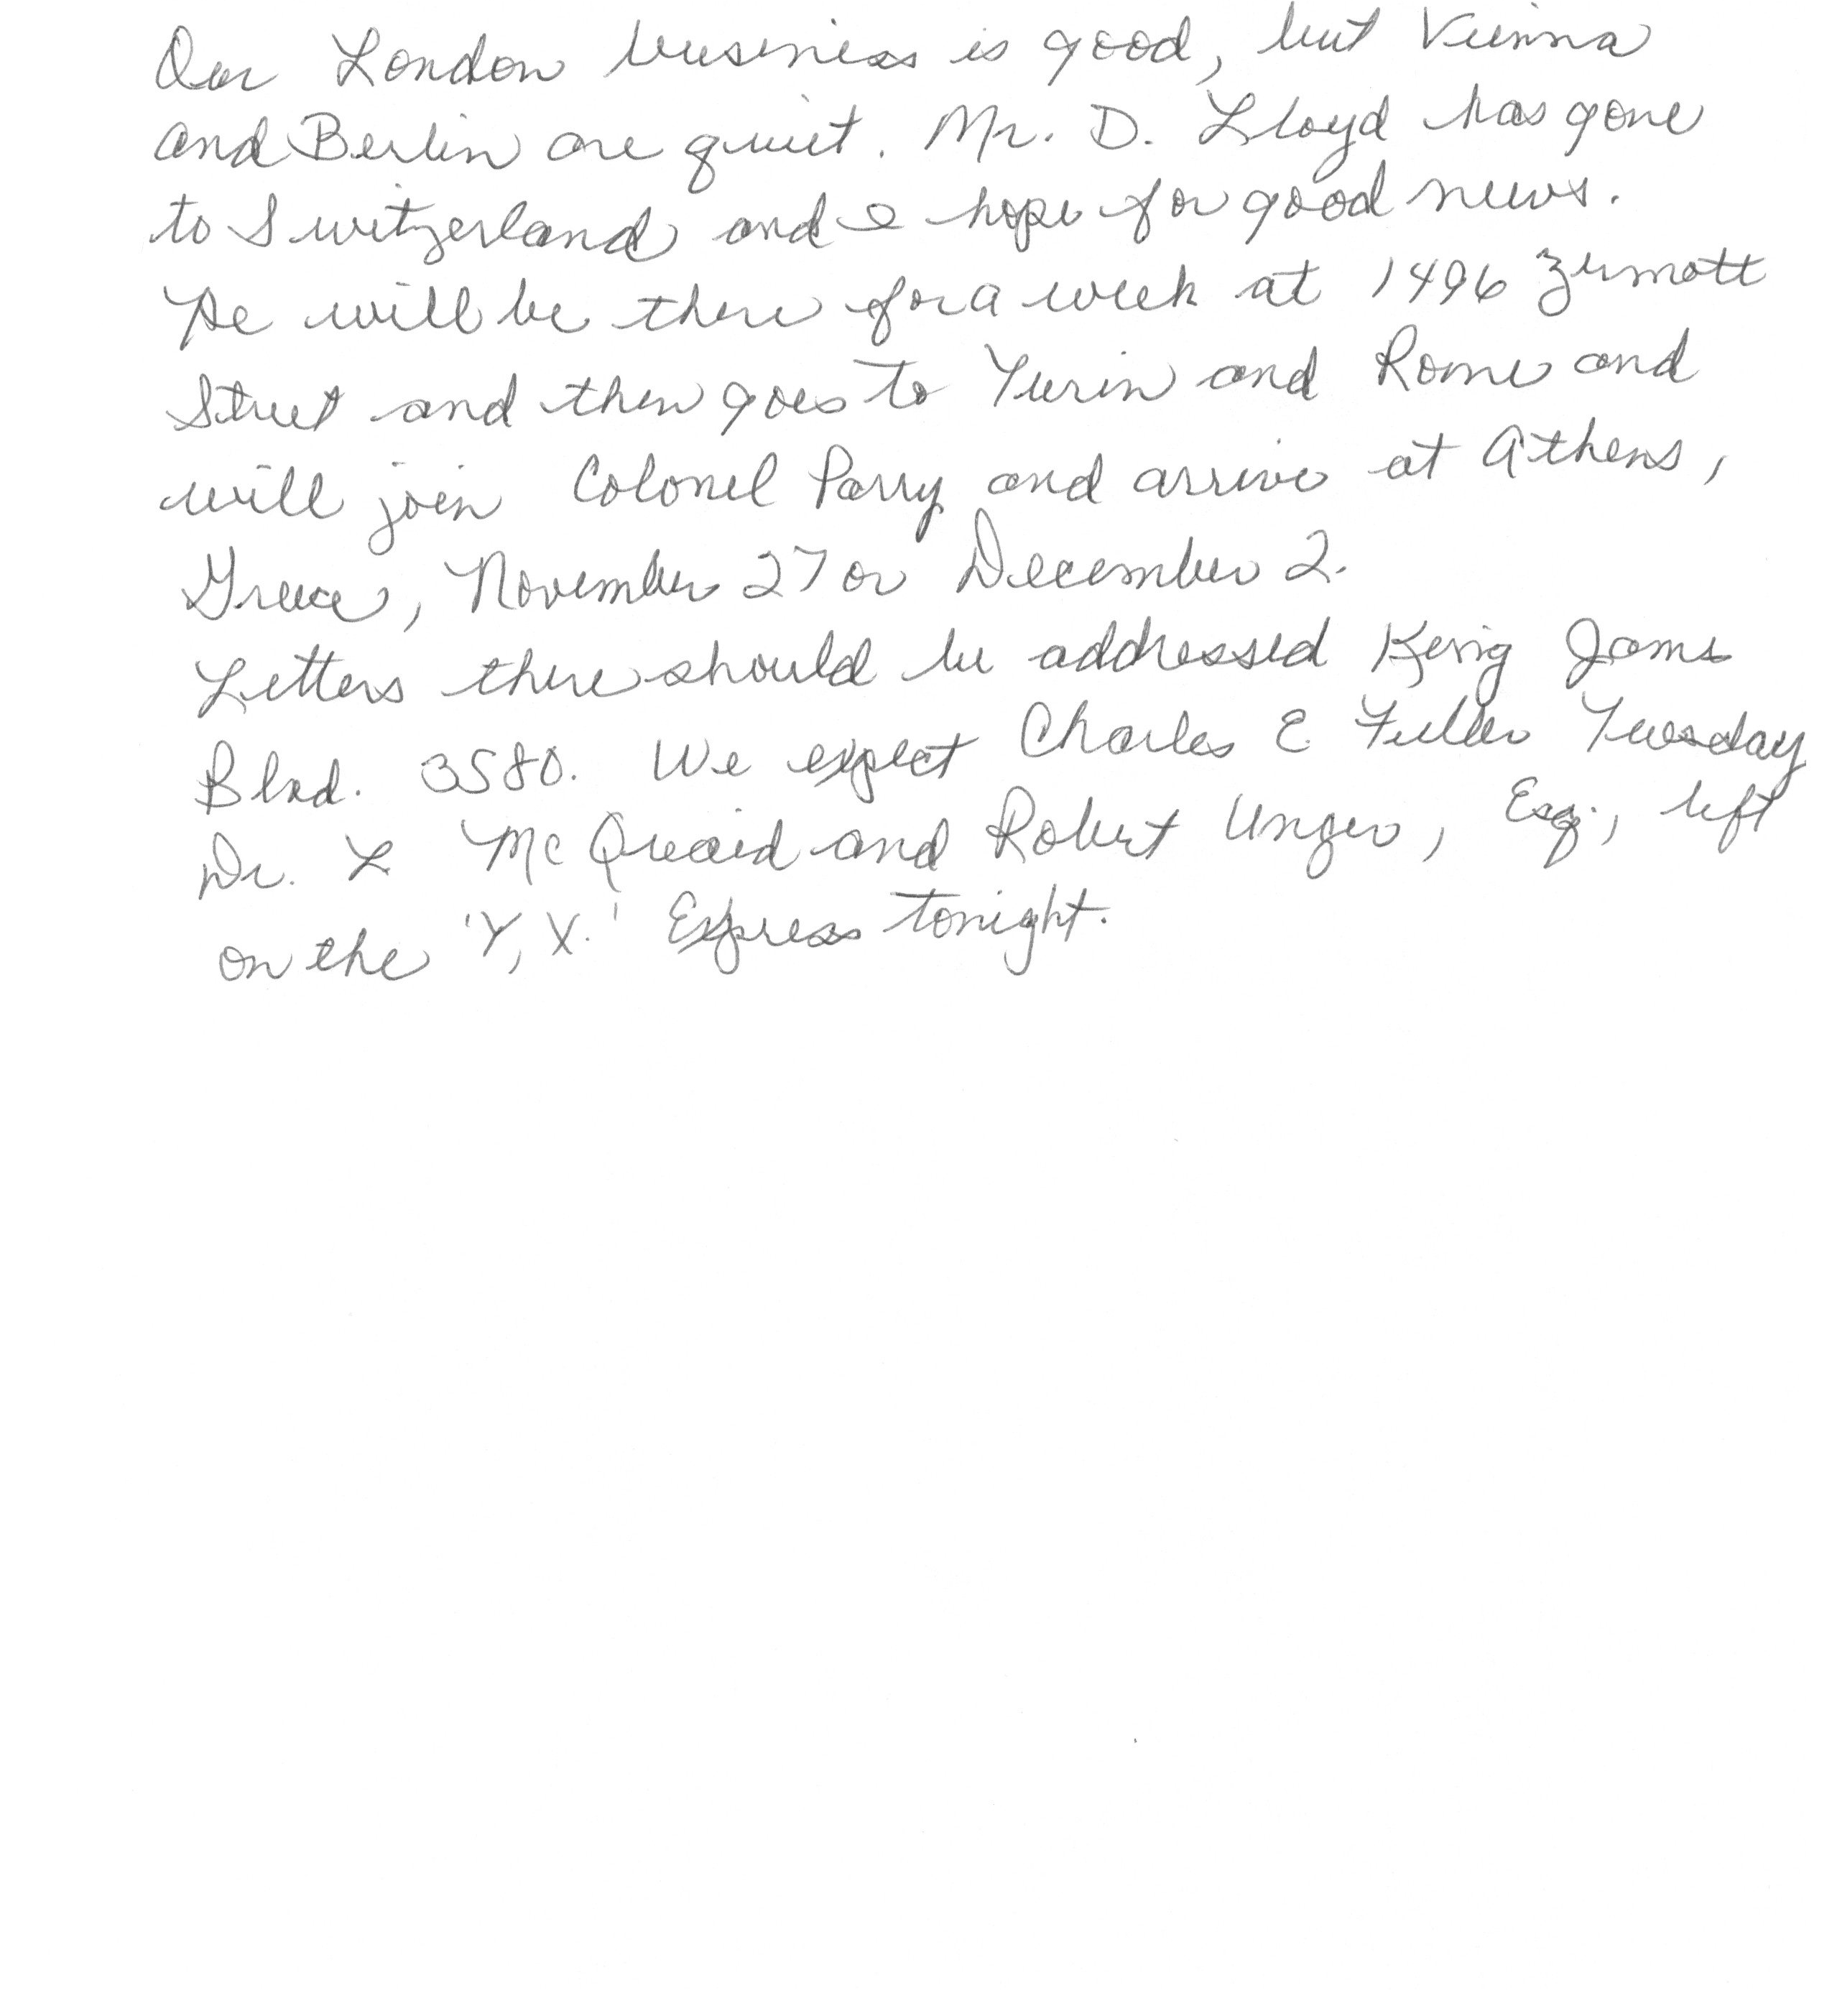 Our London business is good, but Vienna
and Berlin are quiet. Mr. D. Lloyd has gone
to Switzerland and I hope for good news.
He will be there for a week at 1496 Zermott
Street and then goes to Turin and Rome and
will join Colonel Parry and arrive at Athens,
Greece, November 27 or December 2.
Letters there should be addressed King James
Blvd. 3580. We expect Charles E. Fuller Tuesday
Dr. L McQuaid and Robert Unger, Esq., left
on the 'Y, X.' Express tonight.